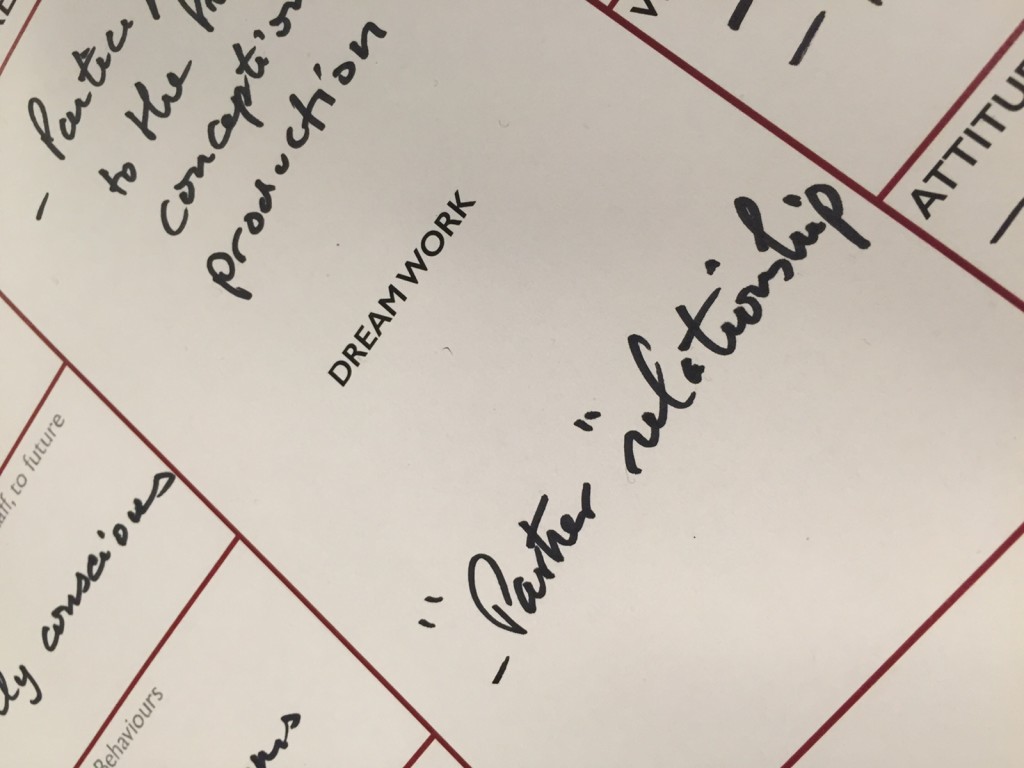 to the
conception
production
DREAM WORK
- "Partner" relationship
ATTITU
to future
ly conscious
Behaviours